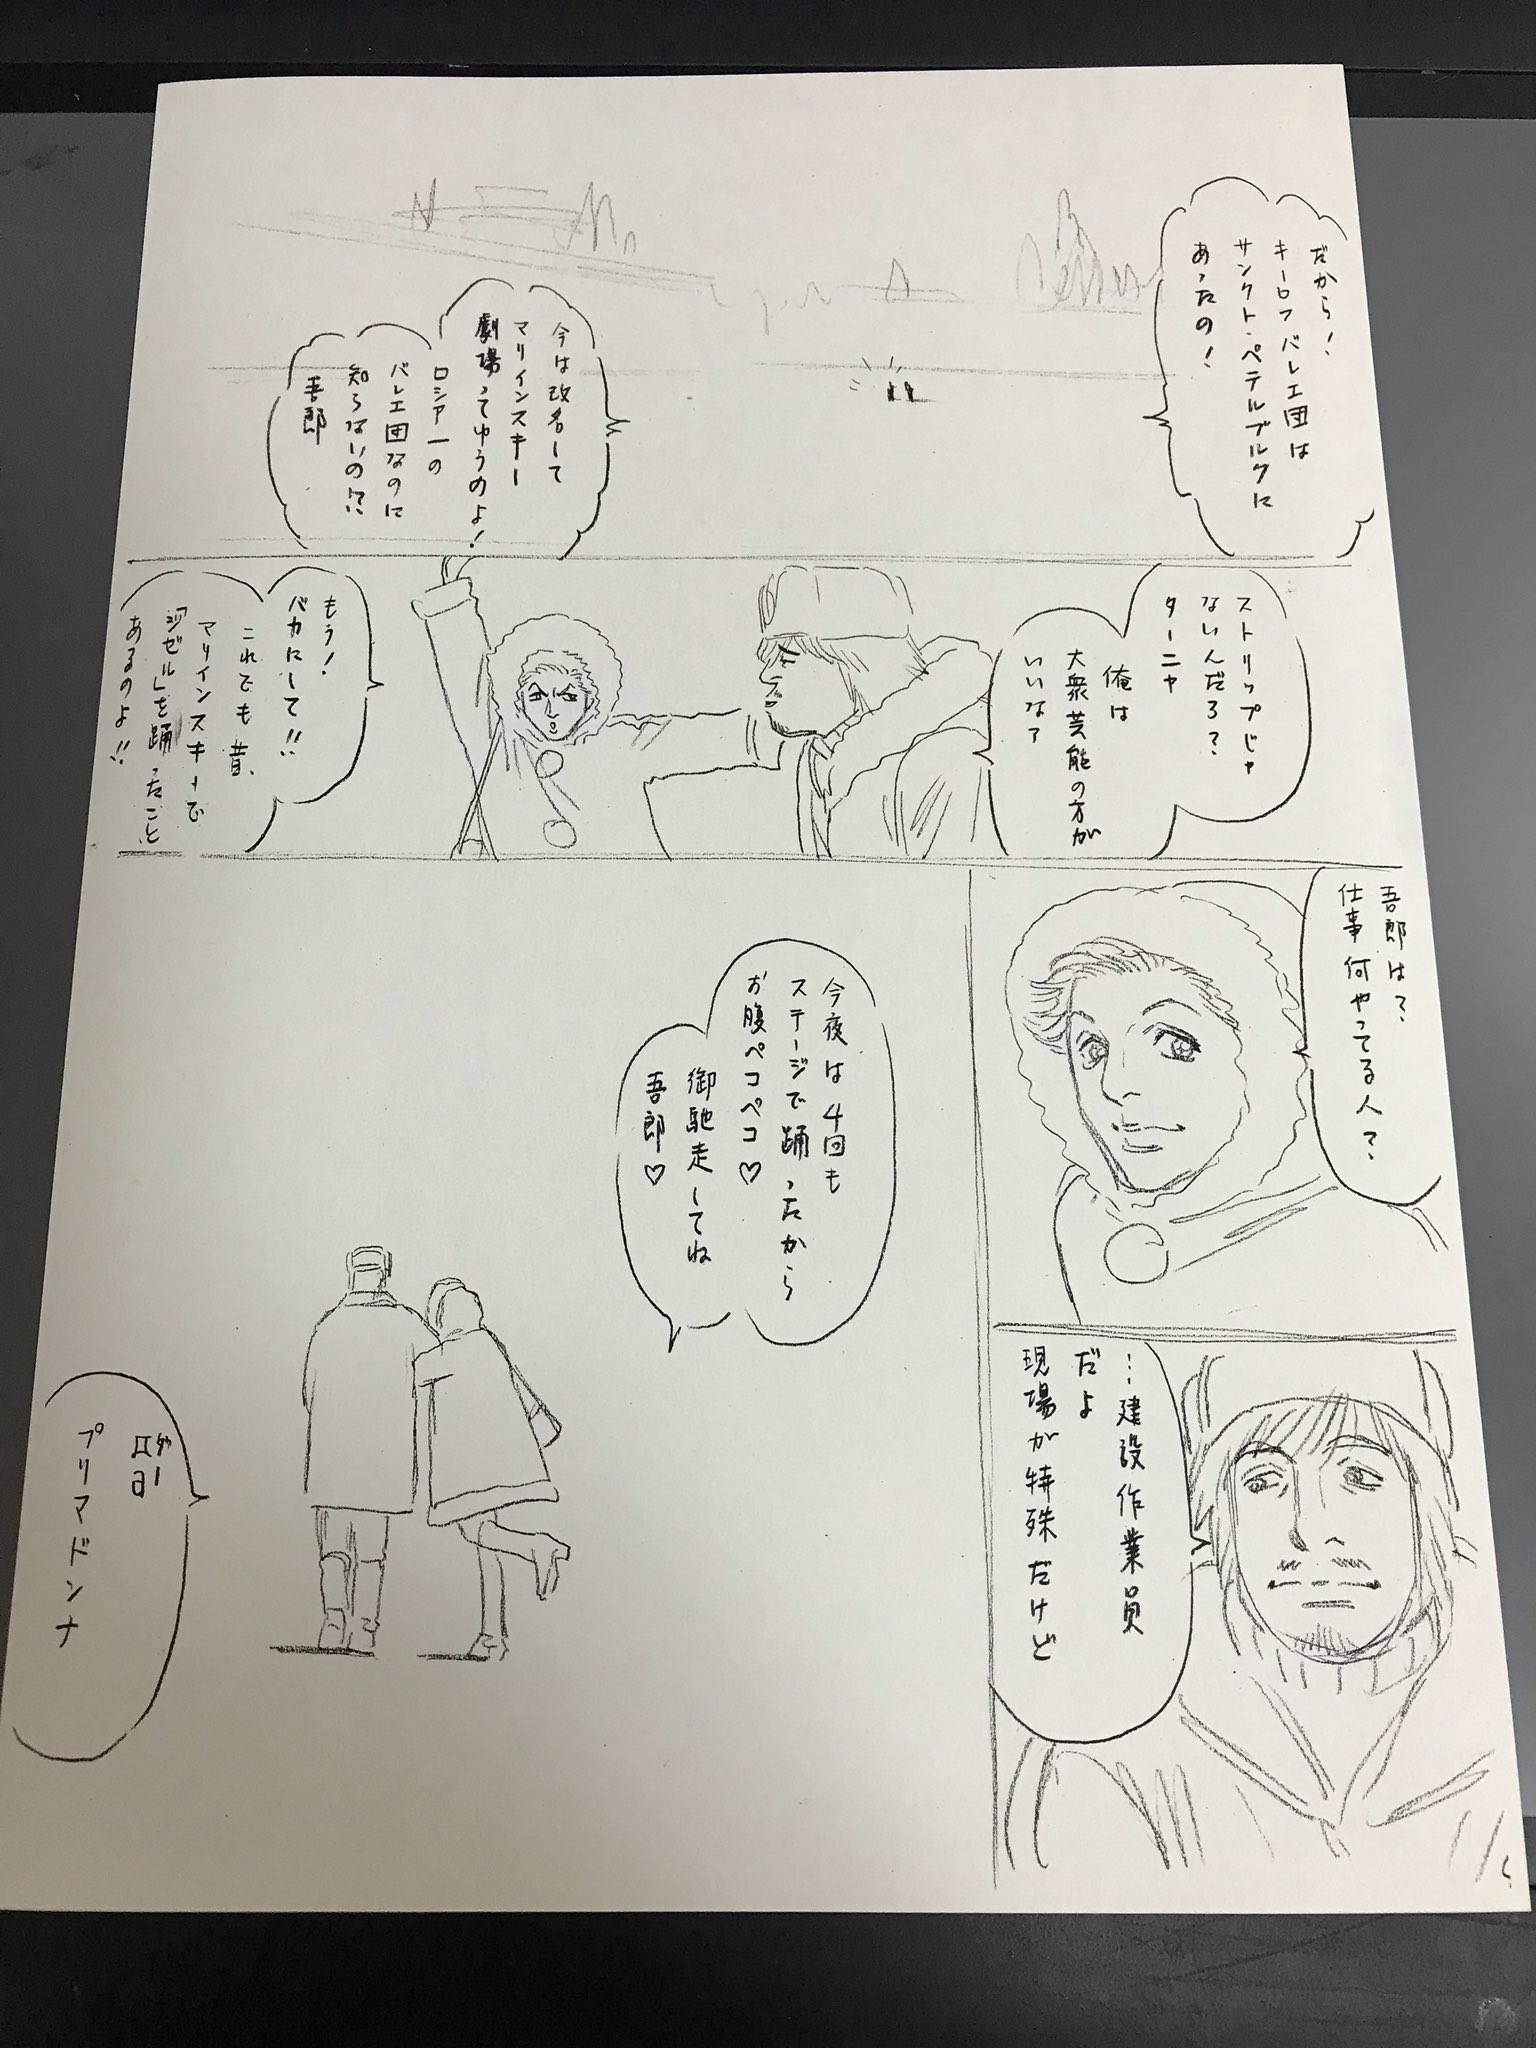 だから!
キーロフバレエ団は
サンクト・ペテルブルクに
あったの!
今は改名して
マリインスキー
劇場ってゆうのよ!
ロシア一の
バレエ団なのに
知らないの!?
吾郎
ストリップじゃ
ないんだろ?
ターニャ
俺は
大衆芸能の方が
いいな?
もう!
バカにして!!
これでも昔、
マリインスキーで
「ジゼル」を踊ったこと
あるのよ!!
吾郎は?
仕事何やってる人?
…建設作業員
だよ
現場が特殊だけど
今夜は4回も
ステージで踊ったから
お腹ペコペコ♡
御馳走してね
吾郎♡
プリマドンナ